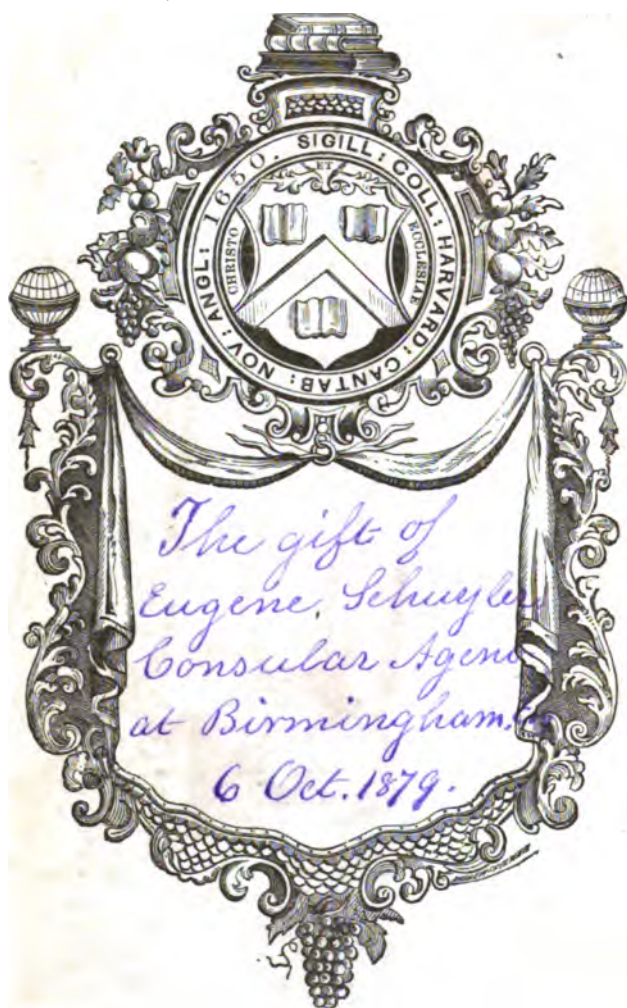 SIGILL: COLL: HARVARD: CANTAB: NOV: ANGL: 1650.
ET
CHRISTO
ECCLESIAE
The gift of
Eugene Schuyler
Consular Agent
at Birmingham
6 Oct. 1879.